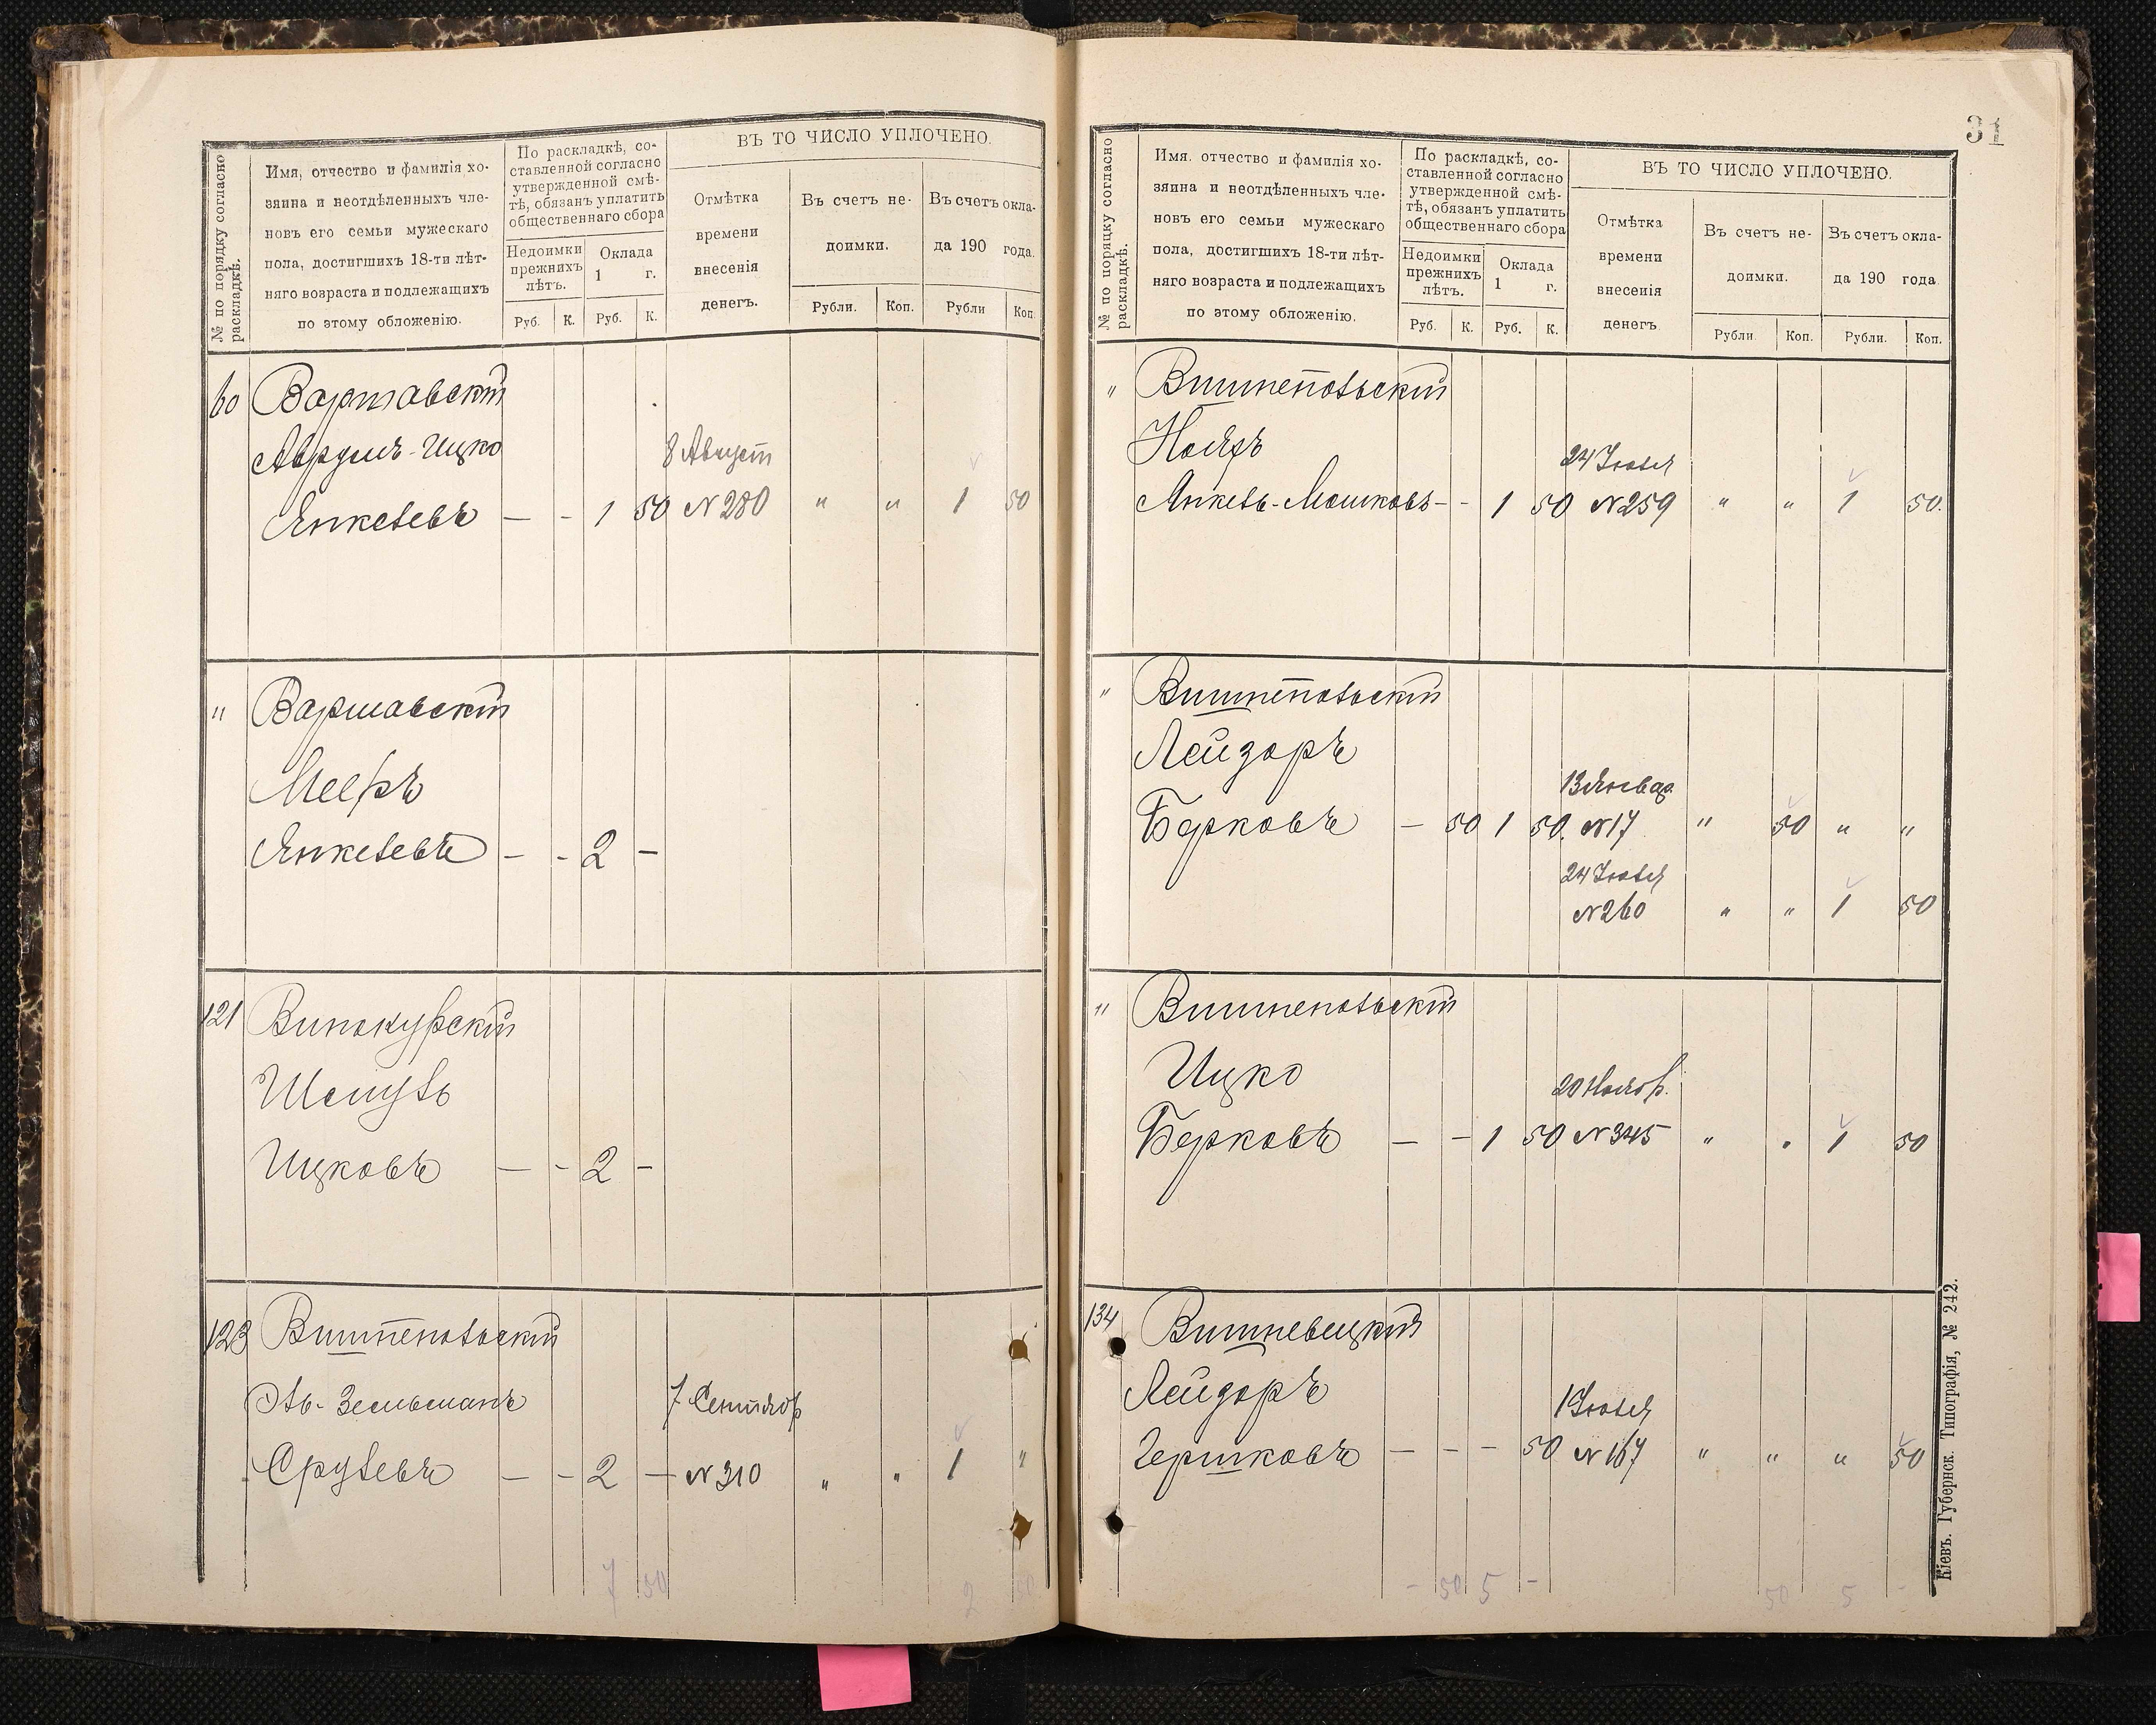 31
№ по порядку согласно раскладкѣ.
Имя, отчество и фамилія хо-
зяина и неотдѣленныхъ чле-
новъ его семьи мужескаго
пола, достигшихъ 18-ти лѣт-
няго возраста и подлежащихъ
по этому обложенію.
По раскладкѣ, со-
ставленной согласно
утвержденной смѣ-
тѣ, обязанъ уплатить
общественнаго сбора
Недоимки
прежнихъ
лѣтъ.
Оклада
1 г.
Руб. К. Руб. К.
ВЪ ТО ЧИСЛО УПЛОЧЕНО.
Отмѣтка
времени
внесенія
денегъ.
Въ счетъ не-
доимки.
Въ счетъ окла-
да 190 года.
Рубли. Коп. Рубли Коп.
60 Варшавскій
Аврумъ-Ицко 8 Август
Янкелевъ — - 1 50 № 280 " " 1 50
" Варшавскій
Мееръ
Янкелевъ — - 2 —
121 Винокурскій
Шмуль
Ицковъ — - 2 —
123 Вишнепольскій
Эль-Зельманъ 7 Сентябр
Срулевъ — - 2 — № 310 " " 1 "
7 50 2 50
№ по порядку согласно раскладкѣ.
Имя, отчество и фамилія хо-
зяина и неотдѣленныхъ чле-
новъ его семьи мужескаго
пола, достигшихъ 18-ти лѣт-
няго возраста и подлежащихъ
по этому обложенію.
По раскладкѣ, со-
ставленной согласно
утвержденной смѣ-
тѣ, обязанъ уплатить
общественнаго сбора
Недоимки
прежнихъ
лѣтъ.
Оклада
1 г.
Руб. К. Руб. К.
ВЪ ТО ЧИСЛО УПЛОЧЕНО.
Отмѣтка
времени
внесенія
денегъ
Въ счетъ не-
доимки.
Въ счетъ окла-
да 190 года
Рубли Коп. Рубли. Коп.
" Вишнепольскій
Нояхъ 24 Іюля
Янкель-Мошковъ - - 1 50 № 259 " " 1 50.
" Вишнепольскій
Лейзоръ
13 Январ.
Берковъ — 50 1 50. № 17 " 50 " "
24 Іюля
№ 260 " " 1 50
" Вишнепольскій
Ицко 20 Ноябр.
Берковъ — - 1 50 № 345 " " 1 50
134 Вишневецкій
Лейзоръ 1 Іюля
Гершковъ — - - 50 № 167 " " " 50
- 50 5 - 50 5 -
Кіевъ. Губернск. Типографія, № 242.